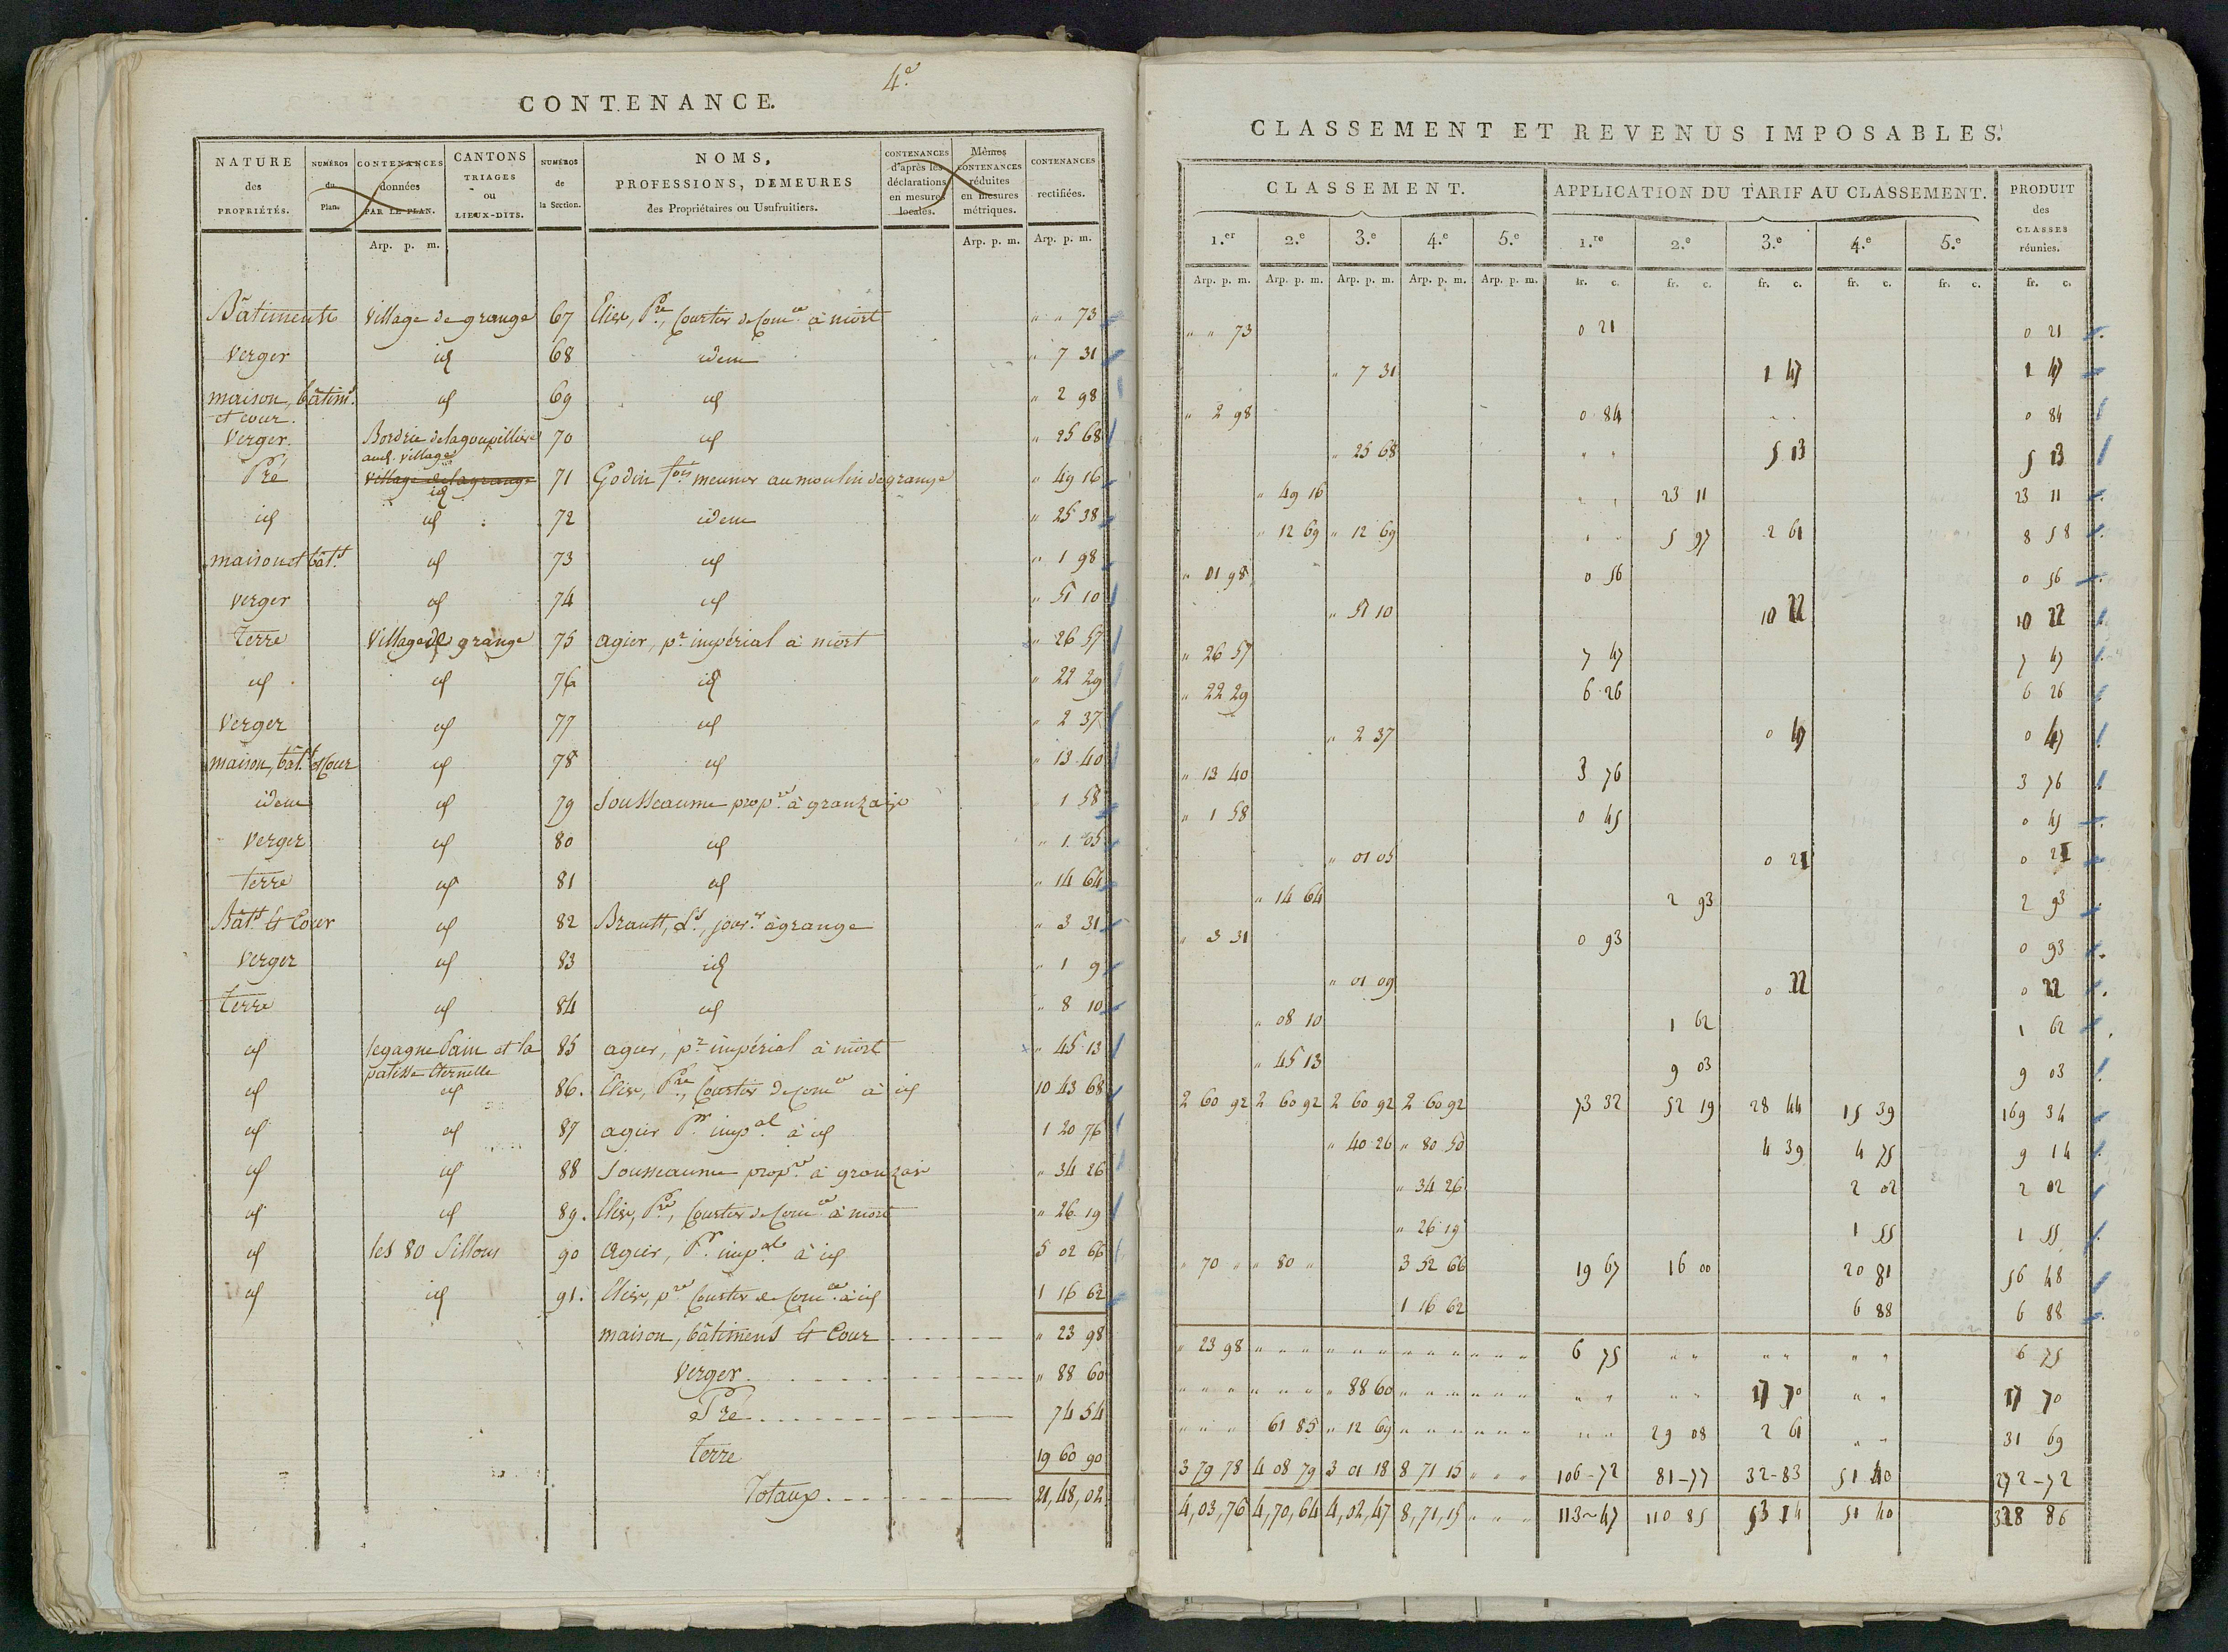 4.e
CONTENANCE.
NATURE des PROPRIÉTÉS. | NUMÉROS du Plan. | CONTENANCES données PAR LE PLAN. | CANTONS TRIAGES OU LIEUX-DITS. | NUMÉROS de la Section. | NOMS, PROFESSIONS, DEMEURES des Propriétaires ou Usufruitiers. | CONTENANCES d'après les déclarations en mesures locales. | Mêmes CONTENANCES réduites en mesures métriques. | CONTENANCES rectifiées.
Arp. p. m. | Arp. p. m. | Arp. p. m.
Bâtiments village de grange 67 Elise, Pre, Courtier de Comce à niort " " 73
verger id 68 idem " 7 31
maison, bâtimt. et cour. id 69 id " 2 98
verger. Bordrie delagoupilliere 70 id " 25 68
aud. village
Pré village de lagrange id 71 Godin fois meunier au moulin de grange " 49 16
id id 72 idem " 25 38
maison et bâtt id 73 id " 1 98
verger id 74 id " 51 10
terre village de grange 75 agier, pr impérial à niort " 26 57
id id 76 id " 22 29
verger id 77 id " 2 37
maison, bâtt. et Cour id 78 id " 13 40
idem id 79 Jousseaume propre à granzaie " 1 58
verger id 80 id " 1 05
terre id 81 id " 14 64
Bâtt. & Cour id 82 Brault, Ls, jourr. à grange " 3 31
verger id 83 id " 1 9
terre id 84 id " 8 10
id legagne Pain et la patisse Eternelle 85 agier, pr impérial à niort " 45 13
id id 86. Elise, Pre, Courtier de Comce à id 10 43 68
id id 87 agier Pr impal à id 1 20 76
id id 88 Jousseaume propre à granzaie " 34 26
id id 89. Elise, Pre, Courtier de Comce à niort " 26 19
id les 80 Sillons 90 agier, Pr impal à id 5 02 66
id id 91. Elise, pre Courtier de Comce à id 1 16 62
maison, bâtimens & Cour " 23 98
verger " 88 60
Pré 74 54
terre 19 60 90
Totaux 21,48,02
CLASSEMENT ET REVENUS IMPOSABLES.
CLASSEMENT. | APPLICATION DU TARIF AU CLASSEMENT. | PRODUIT des CLASSES réunies.
1.er | 2.e | 3.e | 4.e | 5.e | 1.re | 2.e | 3.e | 4.e | 5.e
Arp. p. m. | Arp. p. m. | Arp. p. m. | Arp. p. m. | Arp. p. m. | fr. c. | fr. c. | fr. c. | fr. c. | fr. c. | fr. c.
" " 73 0 21 0 21
" 7 31 1 47 1 47
" 2 98 0 84 0 84
" 25 68 " " 5 13 5 13
" 49 16 " " 23 11 23 11
" 12 69 " 12 69 " " 5 97 2 61 8 58
" 01 98 0 56 0 56
" 51 10 10 22 10 22
" 26 57 7 47 7 47
" 22 29 6 26 6 26
" 2 37 0 47 0 47
" 13 40 3 76 3 76
" 1 58 0 45 0 45
" 01 05 0 21 0 21
" 14 64 2 93 2 93
" 3 31 0 93 0 93
" 01 09 0 22 0 22
" 08 10 1 62 1 62
" 45 13 9 03 9 03
2 60 92 2 60 92 2 60 92 2 60 92 73 32 52 19 28 44 15 39 169 34
" 40 26 " 80 50 4 39 4 75 9 14
" 34 26 2 02 2 02
" 26 19 1 55 1 55
" 70 " " 80 " 3 52 66 19 67 16 00 20 81 56 48
1 16 62 6 88 6 88
" 23 98 " " " " " " " " " " " " 6 75 " " " " " " 6 75
" " " " " " " 88 60 " " " " " " " " " " 17 70 " " 17 70
" " " 61 85 " 12 69 " " " " " " " " 29 08 2 61 " " 31 69
3 79 78 4 08 79 3 01 18 8 71 15 " " " 106-72 81-77 32-83 51 40 272-72
4,03,76 4,70,64 4,02,47 8,71,15 " " " 113-47 110 85 53 14 51 40 328 86